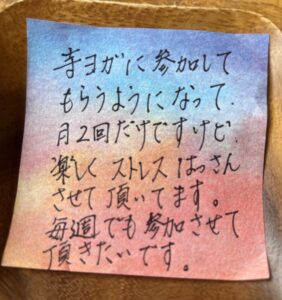 寺ヨガに参加して
もらうようになって、
月2回だけですけど、
楽しくストレスはっさん
させて頂いてます。
毎週でも参加させて
頂きたいです。